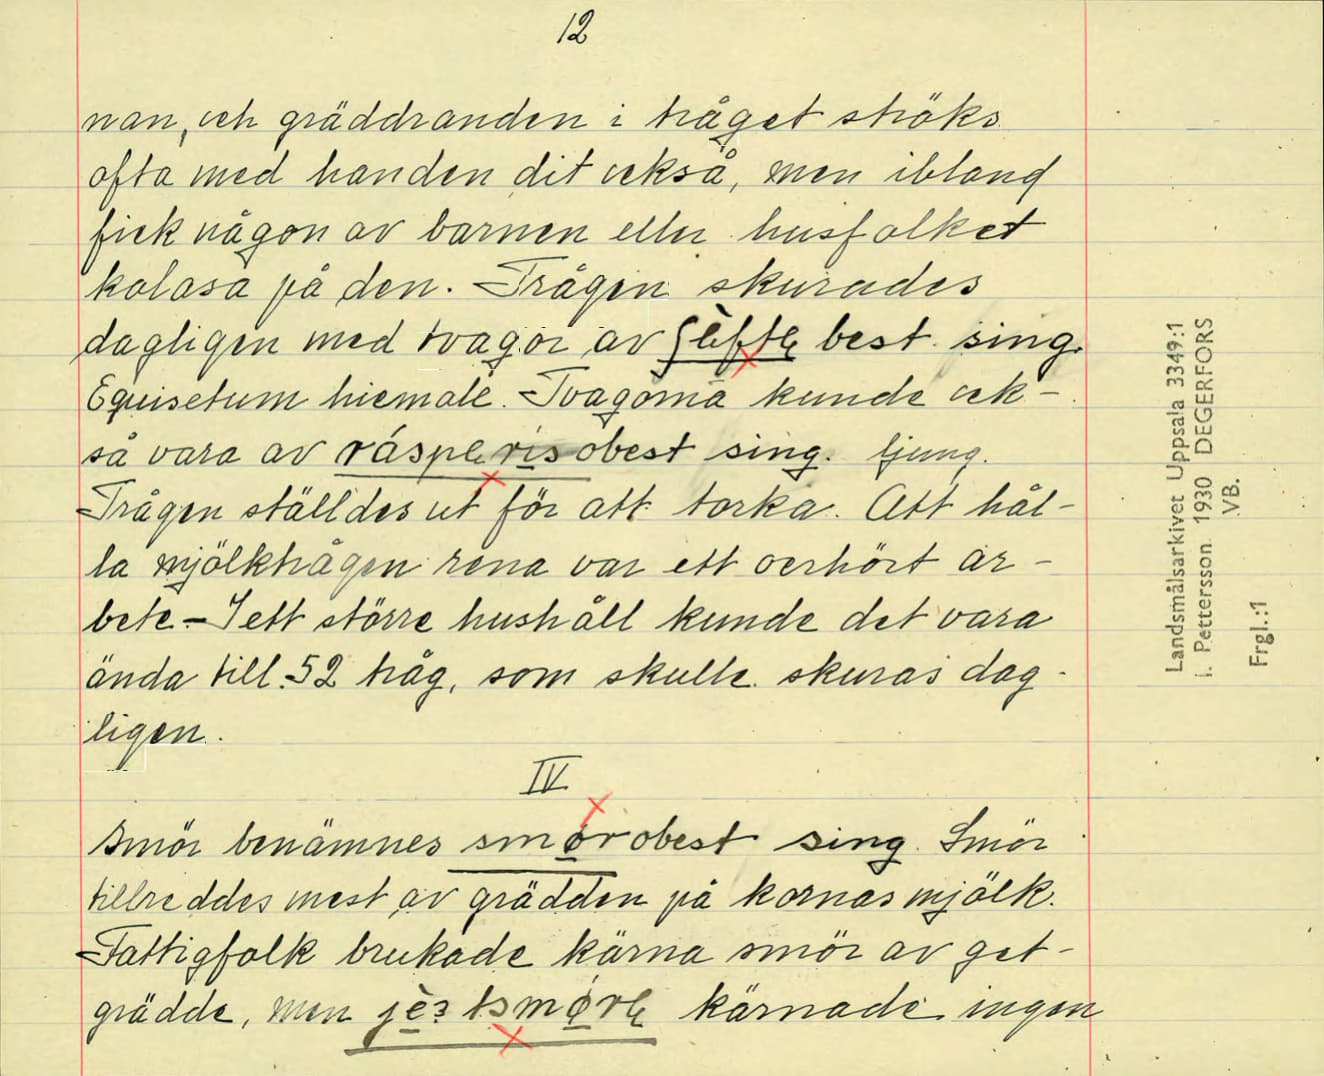 12
nan, och gräddranden i tråget ströks
ofta med handen dit också, men ibland
fick någon av barnen eller husfolket
kalasa på den. Trågen skurades
dagligen med tvagor av best sing.
Equisetum hiemale. Tvagorna kunde ock-
så vara av obest sing. ljung.
Trågen ställdes ut för att torka. Att hål-
la mjölktrågen rena var ett oerhört ar-
bete. – I ett större hushåll kunde det vara
ända till 52 tråg, som skulle skuras dag-
ligen.
IV
Smör benämnes smør obest sing. Smör
tillreddes mest av grädden på kornas mjölk.
Fattigfolk brukade kärna smör av get-
grädde, men kärnade ingen
Landsmålsarkivet Uppsala 3349:1
I. Pettersson. 1930 DEGERFORS
VB.
Frgl.:1